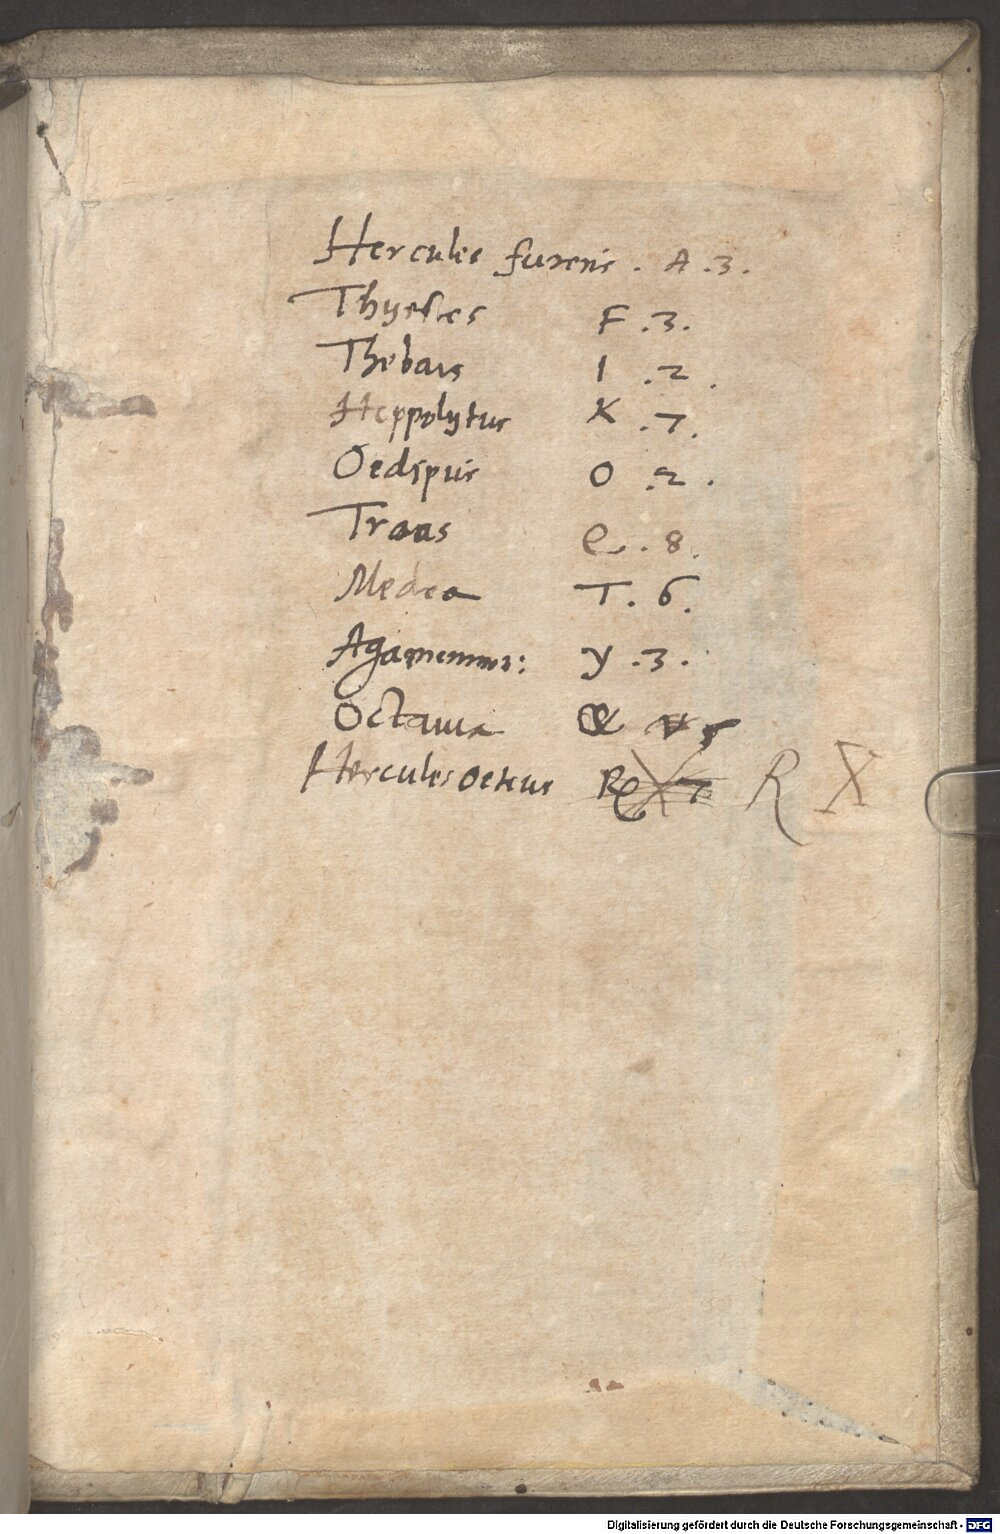 Hercules furens . A .3.
Thyestes F .3.
Thebais I .2 .
Heppolytus K .7.
Oedipus O .2 .
Troas Q . 8 .
Medea T . 6 .
Agamemnon: y .3 .
Octauia &
Hercules Oeteus R X
Digitalisierung gefördert durch die Deutsche Forschungsgemeinschaft - DFG